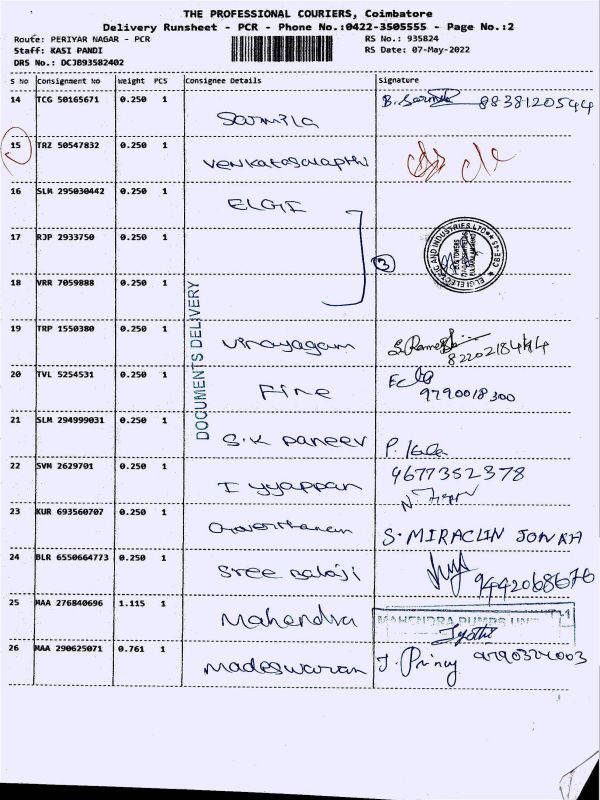 THE PROFESSIONAL COURIERS, Coimbatore
Delivery Runsheet - PCR - Phone No.:0422-3505555 - Page No.:2
Route: PERIYAR NAGAR - PCR RS No.: 935824
Staff: KASI PANDI RS Date: 07-May-2022
DRS No.: DCJB93582402
S No Consignment No Weight PCS Consignee Details Signature
14 TCG 50165671 0.250 1 Sarmila 8838120544
15 TRZ 50547832 0.250 1 Venkatasalapthi
16 SLM 295030442 0.250 1 ELGI
17 RJP 2933750 0.250 1 3
ELGI ELECTRIC AND INDUSTRIES LTD
18 VRR 7059888 0.250 1
DOCUMENTS DELIVERY
19 TRP 1550380 0.250 1 Vinayagam S. Ramesh
20 TVL 5254531 0.250 1 Fire 9790018300
21 SLM 294999031 0.250 1 S.K Paneev P. Kala
22 SVM 2629701 0.250 1 Iyyappan 9677352378
23 KUR 693560707 0.250 1 S. MIRACLIN JONAH
24 BLR 6550664773 0.250 1 Sree Balaji 9442068676
25 MAA 276840696 1.115 1 Mahendra MAHENDRA PUMPS UNIT
Jyothi
26 MAA 290625071 0.761 1 Madeswaran J. Princy